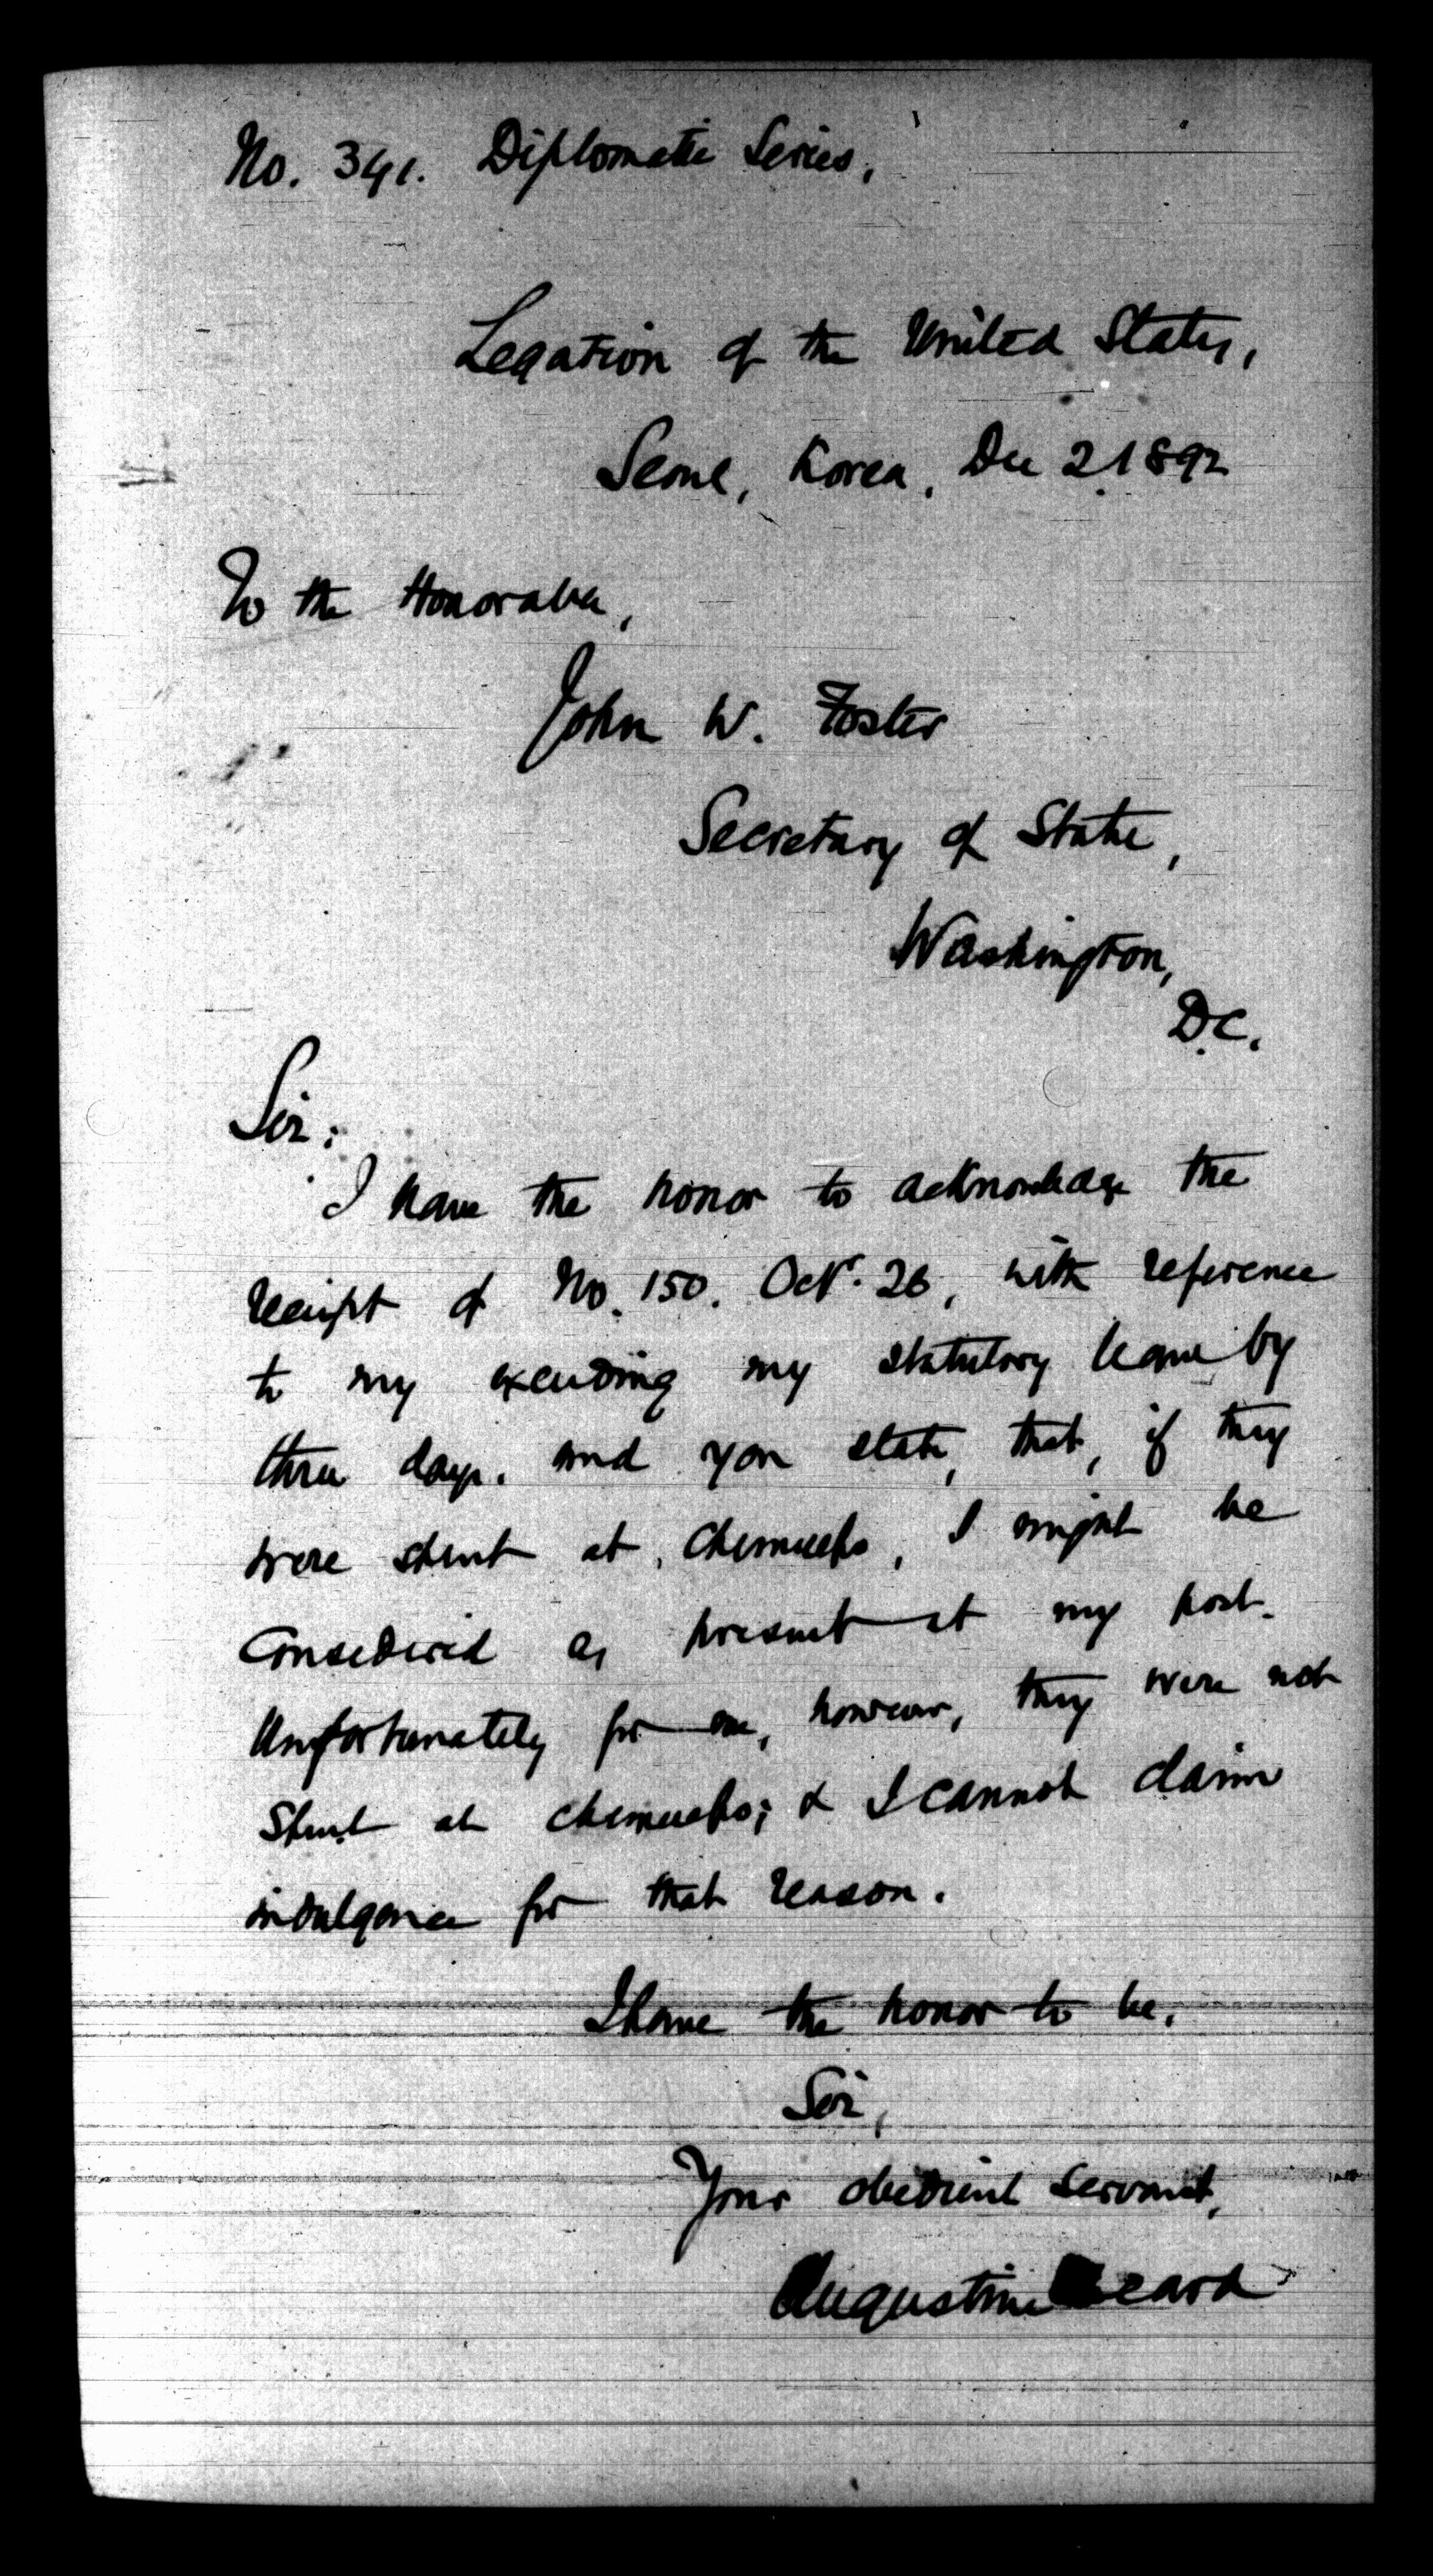 No. 341. Diplomatic Series,
Legation of the United States,
Seoul, Korea, Dec 2, 1892
To the Honorable,
John W. Foster
Secretary of State,
Washington,
D.C.
Sir:
I have the honor to acknowledge the
receipt of No. 150. Oct. 26, with reference
to my exceeding my statutory leave by
three days. and you state, that, if they
were spent at Chemulpo, I might be
considered as present at my post.
Unfortunately for me, however, they were not
spent at Chemulpo; & I cannot claim
indulgence for that reason.
I have the honor to be,
Sir,
Your obedient servant,
Augustine Heard